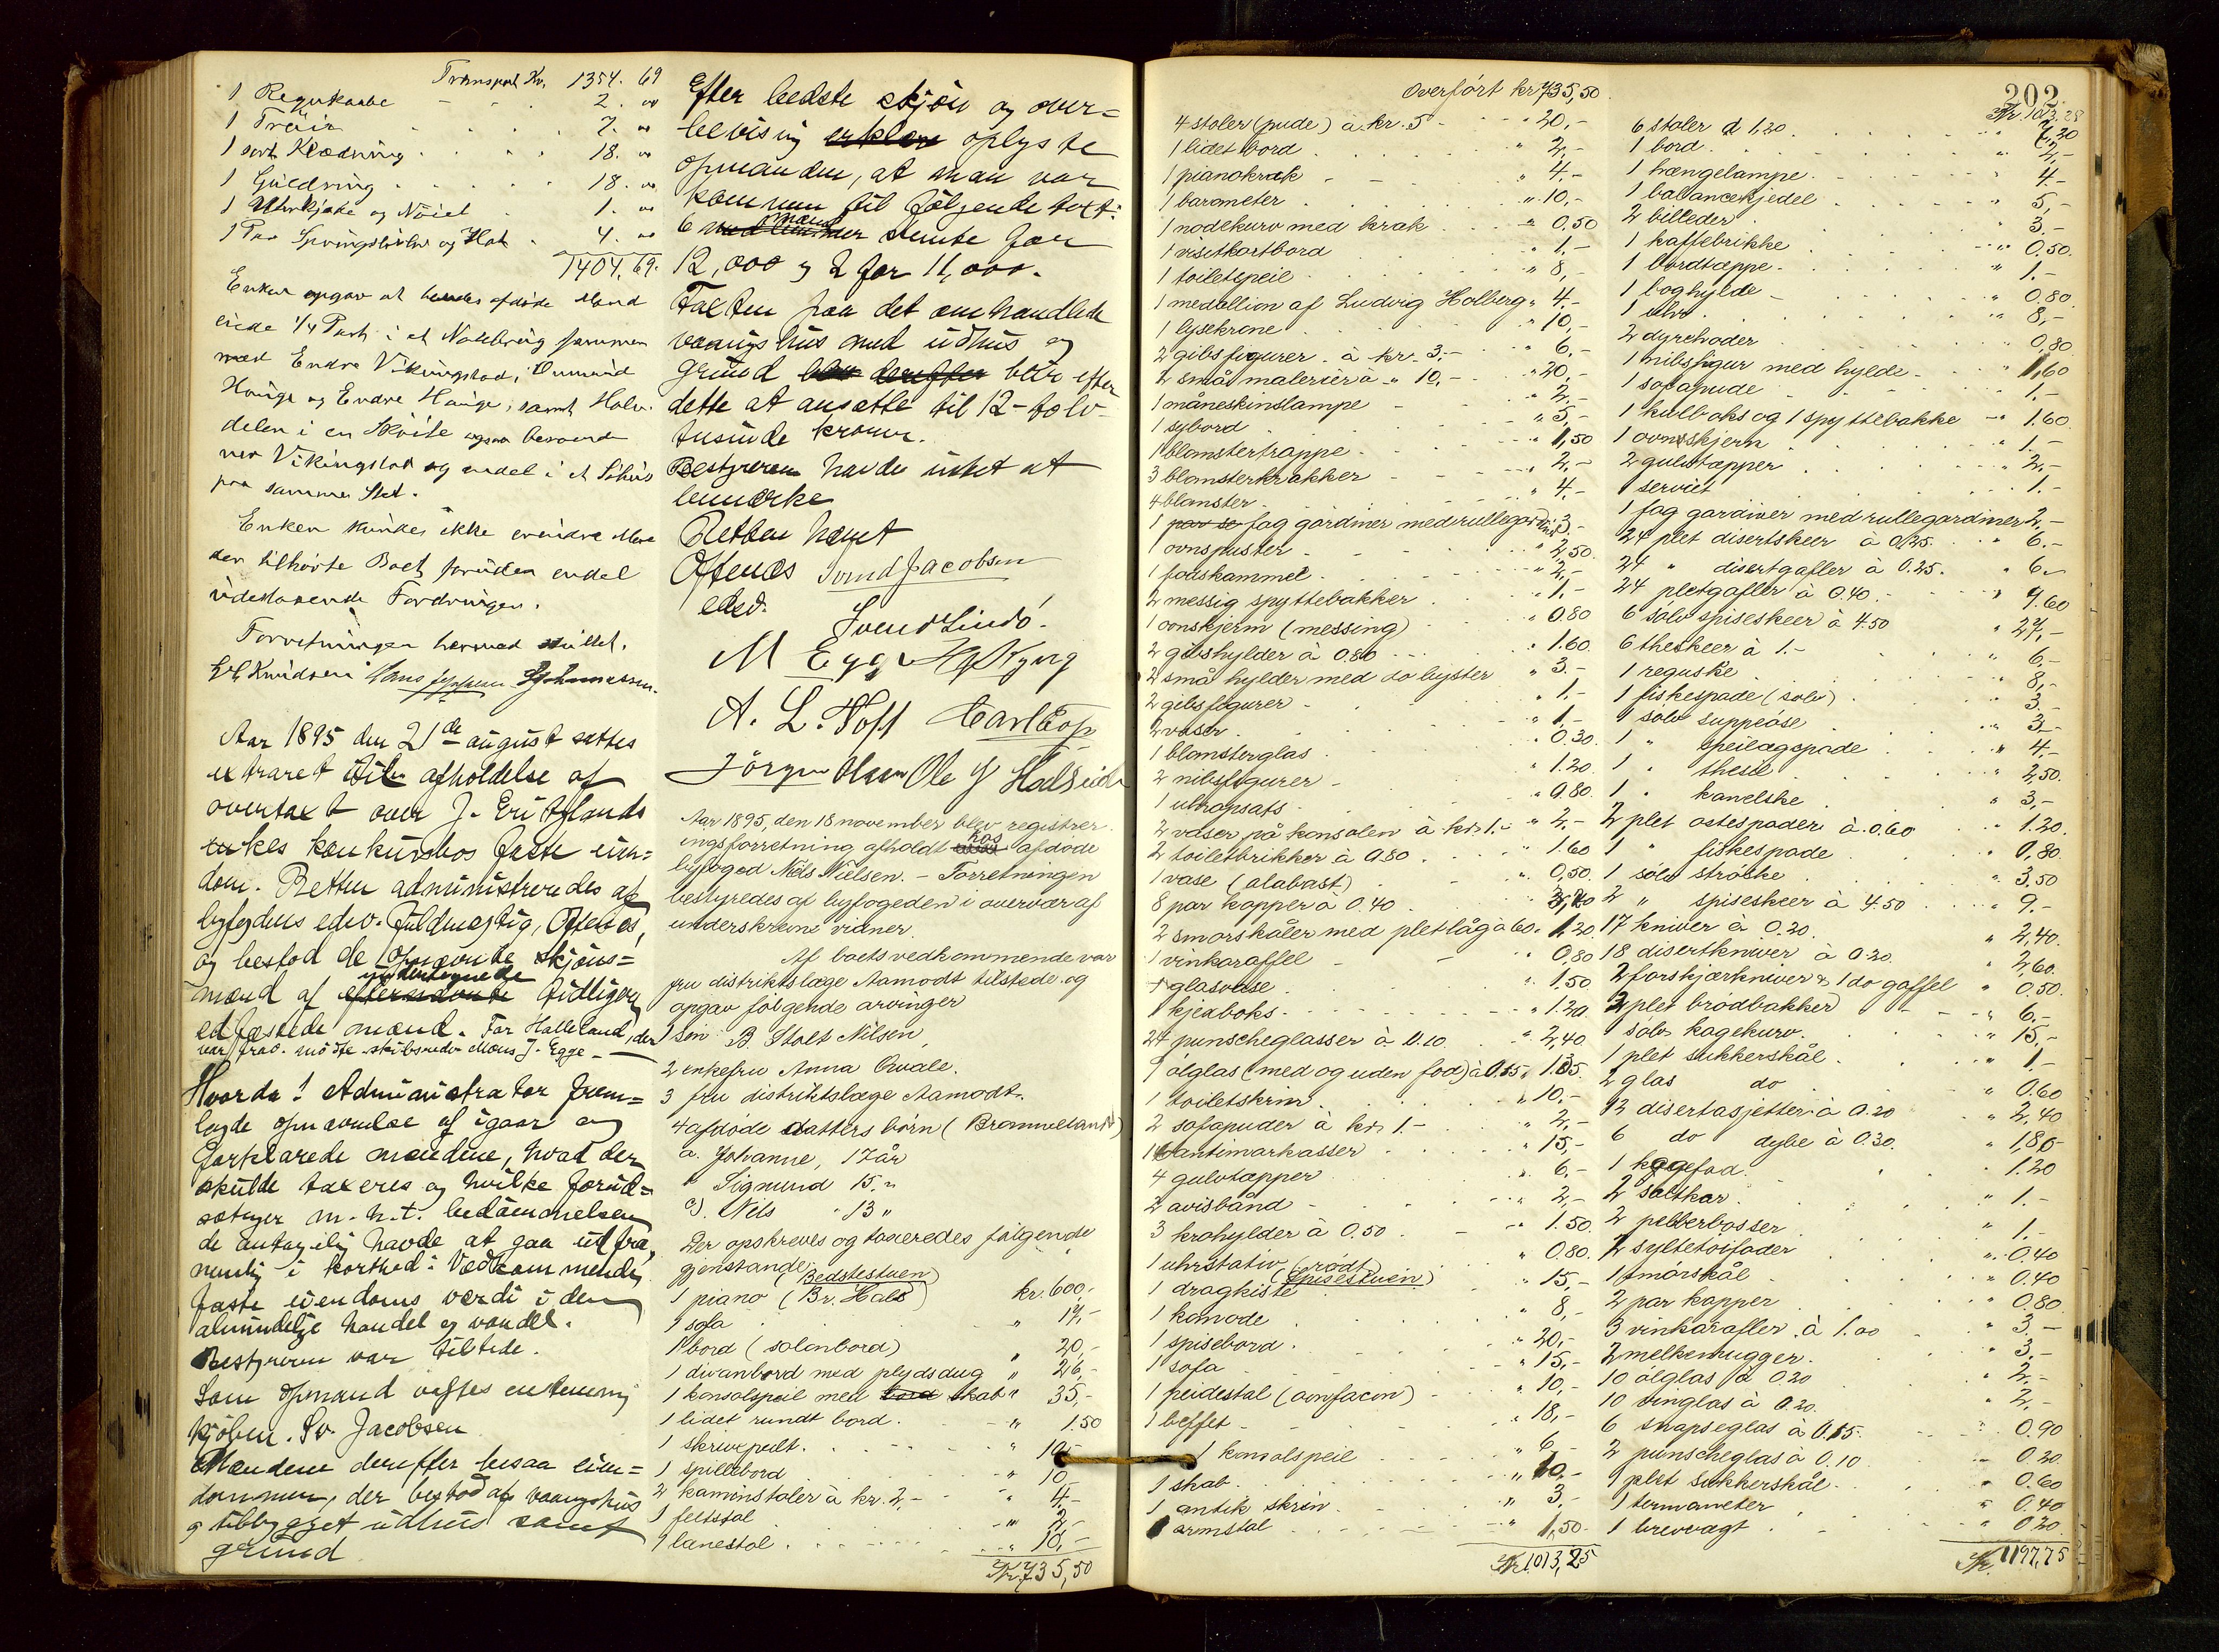 Transport Kr. 1354. 69
1 Regnkaabe 2. "
1 Trøie 7. "
1 sort Klædning 18. "
1 Guldring 18. "
1 Uhrkjæde og Nøiel 1. "
1 Par og Hat 4. "
1404.69.
Enken opgav at hendes afdøde Mand
eiede 1/4 Part i et Notebrug sammen
med Endre Vikingstad, Ommund
Hauge og Endre Hauge, samt Halv-
delen i en Skøite ogsaa beroende
ver Vikingstad og endel i et Søhus
paa samme Sted.
Enken kunde ikke erindre Mere
der tilhørte Boet foruden endel
udestaaende Fordringer.
Forretningen hermed sluttet.
Knudsen Hans Jeppesen Johannessen.
Aar 1895 den 21de august sattes
extraret til afholdelse af
overtaxt over J. Eritslands
enkes konkursbos faste eien=
dom. Retten administreredes af
byfogdens edsv. fuldmægtig, Oftenæs,
og bestod de opnævnte skjøns=
mænd af efternævnte undertegnede tidligere
edfæstede mænd. For Halleland, der
var frav. mødte skibsreder Mons J. Egge. —
Hvorda! Administrator frem=
lagde opnævnelse af igaar og
forklarede mændene, hvad der
skulde taxeres og hvilke forud=
sætninger m.h.t. bedømmelsen
de antagelig havde at gaa ut fra,
nemlig i korthed: Vedkommende
faste eiendoms værdi i den
almindelige handel og vandel.
Bestyreren var tilstede.
Som opmand valgtes enstemmig
kjøbm. Sv. Jacobsen
Mændene derefter besaa eien=
dommen, der bestod af vaaningshus
og tilbygget udhus samt
grund
Efter bedste skjøn og over=
bevisning erklære oplyste
opmanden, at man var
kommen til følgende taxt:
6 medlemmer mænd stemte for
12,000 og 2 for 11,000.
Taxten paa det omhandlede
vaaningshus med udhus og
grund blev derefter blev efter
dette at ansætte til 12-tolv-
tusinde kroner.
Bestyreren havde intet at
bemærke
Retten hævet
Oftenæs Svend Jacobsen
edsv. Svend Lindø.
M Egge
A. L. Toft Carl Eop
Jörgen Olsen Ole G Halseide
Aar 1895, den 18 november blev registrer-
ingsforretning afholdt hos afdøde
byfogod Niels Nielsen. – Forretningen
bestyredes af byfogeden i overvær af
underskrevne vidner.
Af boets vedkommende var
fru distriktslæge Aamodt tilstede og
opgav følgende arvinger
1 søn B. Stolt Nilsen,
2 enkefru Anna Qvale.
3 fru distriktslæge Aamodt.
4 afdøde datters børn (Brommeland)
a. Johanne, 17 år
" Sigmund 15 "
c). Nils " 13 "
Der opskreves og taxeredes følgende
gjenstande:
(Bedstestuen)
1 piano (Br. Hals) kr. 600,-
1 sofa " 14,-
1 bord (salonbord) " 20,-
1 divanbord med plydsdug " 26,-
1 konsolspeil med bord skab " 35,-
1 lidet rundt bord. " 1.50
1 skrivepult. " 10,-
1 spillebord " 10,-
2 kaminstoler à kr. 2,- " 4,-
1 feltstol " 2,-
1 lænestol " 10,-
Kr. 735,50
Overført kr 735,50.
4 stoler (pude) à kr. 5 " 20,-
1 lidet bord " 2,-
1 pianokrak " 4,-
1 barometer " 10,-
1 nodekurv med krak " 0.50
1 visitkortbord " 1,-
1 toiletspeil " 8,-
1 medallion af Ludvig Holberg " 4,-
1 lysekrone " 10,-
2 gibsfigurer à kr. 3,- " 6,-
2 små malerier à " 10,- " 20,-
1 måneskinslampe " 2,-
1 sybord " 5,-
1 blomstertrappe " 1,50
3 blomsterkrakker " 2,-
4 blomster " 4,-
1 par se fag gardiner med rullegardin " 3,-
1 ovnspuster " 2,50
1 fodskammel " 2,-
2 messig spyttebakker " 1,-
1 ovnskjerm (messing) " 0.80
2 gibshylder à 0.80 " 1.60
2 små hylder med do byster " 3,-
2 gibsfigurer " 1,-
2 vaser " 1,-
1 blomsterglas " 0.30.
2 nibsfigurer " 1.20
1 uhropsats " 0.80.
2 vaser på konsolen à kr. 1.- " 2,-
2 toiletbrikker à 0.80 " 1.60
1 vase (alabast) " 0,50.
8 par kopper à 0.40 " 3,20
2 smørskåler med pletlåg à 60 " 1.20
1 vinkaraffel " 0,80
1 glasvase " 1.50
1 kjexboks " 1.20
24 punscheglasser à 0.10 " 2,40
9 ølglas (med og uden fod) à 0.15 " 1.35.
1 toiletskrin " 10,-
2 sofapuder à kr. 1.- " 2,-
16 antimarkasser " 15,-
4 gulvtæpper " 6,-
2 avisbånd " 2,-
3 krohylder à 0.50 " 1.50
1 uhrstativ (rødt) " 0.80.
(Spisestuen)
1 dragkiste " 15,-
1 komode " 8,-
1 spisebord " 20,-
1 sofa " 15,-
1 peidestal (ovnfacon) " 10,-
1 beffet " 18,-
1 konsolspeil " 6,-
1 skab " 10,-
1 antik skrin " 3,-
1 armstol " 1,50.
Kr. 1013,25
202
Kr. 1013,25
6 stoler à 1,20 " 7.20
1 bord " 2,-
1 hængelampe " 4.-
1 balancekjedel " 5,-
2 billeder " 3.-
1 kaffebrikke " 0.50.
1 bordtæppe " 1.-
1 boghylde " 0.80.
1 ulv " 8,-
2 dyrehoder " 0,80
1 nibsfigur med hylde " 1,60
1 sofapude " 1.-
1 kulboks og 1 spyttebakke " 1.60.
1 ovnsskjerm " 1.-
2 gulvtæpper " 2,-
1 serviet " 1.-
1 fag gardiner med rullegardiner 2,-
24 plet disertskeer à 0.25 " 6.-
24 " disertgafler à 0.25 " 6.-
24 pletgafler à 0.40 " 9.60
6 sølv spiseskeer à 4.50 " 27,-
6 theskeer à 1.- " 6,-
1 reguske " 8,-
1 fiskespade (sølv) " 3.-
1 sølv suppeøse " 3,-
1 " speilægspade " 4,-
1 " thesil " 2,50.
1 " kanelske " 3,-
2 plet ostespader à 0.60 " 1.20.
1 " fiskespade " 0,80.
1 sølv strøske " 3,50
2 " spiseskeer à 4.50 " 9.-
17 kniver à 0.20. " 2,40.
18 disertkniver à 0.20. " 2,60.
2 forskjærkniver & 1 do gaffel " 0.50.
2 plet brødbakker " 6.-
1 sølv kagekurv " 15,-
1 plet sukkerskål " 1.-
2 glas do " 0.60
12 disertasjetter à 0.20 " 2,40
6 do dybe à 0.30. " 1,80
1 kagefad " 1.20
2 saltkar " 1.-
2 pebberbosser " 1.-
2 syltetøifader " 0.40
1 smørskål " 0.40
2 par kopper " 0.80.
3 vinkarafler à 1.00 " 3.-
2 melkemugger " 3.-
10 ølglas à 0.20 " 2,-
10 vinglas à 0.20. " 2,-
6 snapseglas à 0.15 " 0.90
2 punscheglas à 0.10 " 0.20.
1 plet sukkerskål " 0.60
1 termometer " 0.40
1 brevvægt " 0.20
Kr. 1197,75